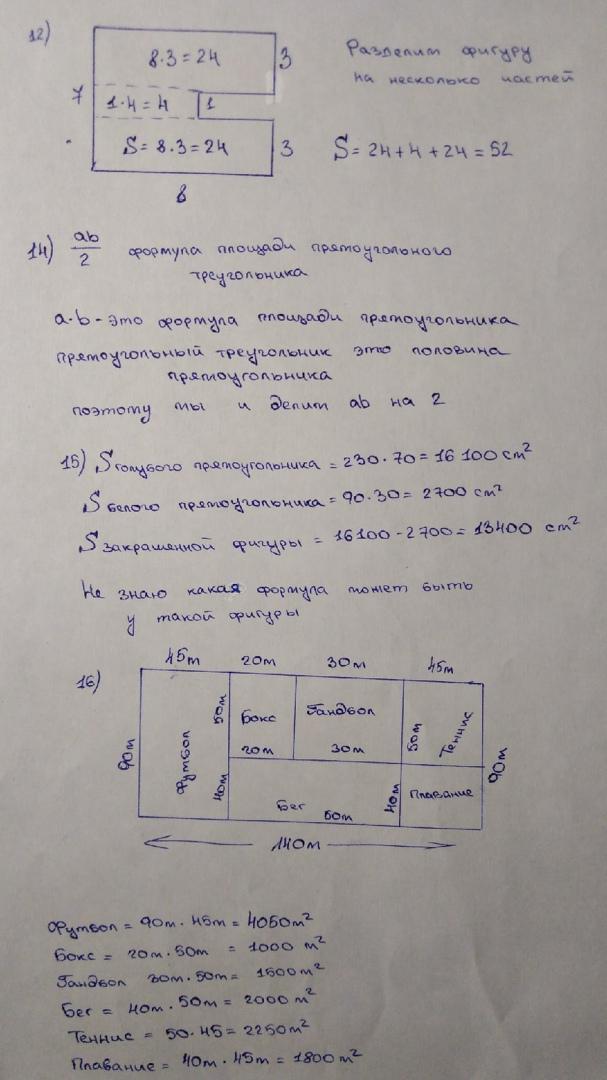 12)
8·3=24
3
Разделим фигуру
на несколько частей
7
1·4=4
1
S=8·3=24
3
S=24+4+24=52
8
14) ab/2 формула площади прямоугольного
треугольника
a·b-это формула площади прямоугольника
прямоугольный треугольник это половина
прямоугольника
поэтому мы и делим ab на 2
15) S голубого прямоугольника =230·70=16 100 cm²
S белого прямоугольника =90·30= 2700 cm²
S закрашенной фигуры = 16100-2700=13400 cm²
Не знаю какая формула может быть
у такой фигуры
16)
45m 20m 30m 45m
90m
Футбол
50m
40m
Бокс
20m
Гандбол
30m
50m
Теннис
90m
Бег
50m
40m
Плавание
140m
Футбол = 90m·45m=4050m²
Бокс = 20m·50m = 1000 m²
Гандбол 30m·50m= 1500m²
Бег = 40m·50m=2000m²
Теннис = 50·45=2250m²
Плавание = 40m·45m=1800m²